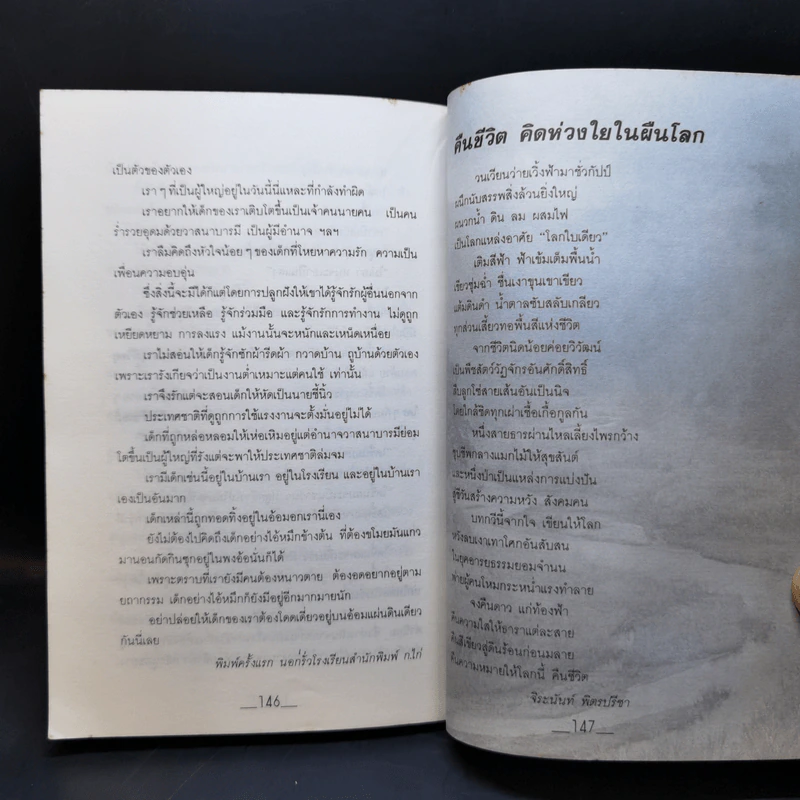 เป็นตัวของตัวเอง
เราๆ ที่เป็นผู้ใหญ่อยู่ในวันนี้นี่แหละที่กำลังทำผิด
เราอยากให้เด็กของเราเติบโตขึ้นเป็นเจ้าคนนายคน เป็นคน
ร่ำรวยอุดมด้วยวาสนาบารมี เป็นผู้มีอำนาจ ฯลฯ
เราลืมคิดถึงหัวใจน้อยๆ ของเด็กที่โหยหาความรัก ความเป็น
เพื่อนความอบอุ่น
ซึ่งสิ่งนี้จะมีได้ก็แต่โดยการปลูกฝังให้เขาได้รู้จักรักผู้อื่นนอกจาก
ตัวเอง รู้จักช่วยเหลือ รู้จักร่วมมือ และรู้จักรักการทำงาน ไม่ดูถูก
เหยียดหยาม การลงแรง แม้งานนั้นจะหนักและเหน็ดเหนื่อย
เราไม่สอนให้เด็กรู้จักซักผ้ารีดผ้า กวาดบ้าน ถูบ้านด้วยตัวเอง
เพราะเรารังเกียจว่าเป็นงานต่ำเหมาะแต่คนใช้ เท่านั้น
เราจึงรักแต่จะสอนเด็กให้หัดเป็นนายชี้นิ้ว
ประเทศชาติที่ดูถูกการใช้แรงงานจะตั้งมั่นอยู่ไม่ได้
เด็กที่ถูกหล่อหลอมให้เห่อเหิมอยู่แต่อำนาจวาสนาบารมีย่อม
โตขึ้นเป็นผู้ใหญ่ที่รังแต่จะพาให้ประเทศชาติล่มจม
เรามีเด็กเช่นนี้อยู่ในบ้านเรา อยู่ในโรงเรียน และอยู่ในบ้านเรา
เองเป็นอันมาก
เด็กเหล่านี้ถูกทอดทิ้งอยู่ในอ้อมอกเรานี่เอง
ยังไม่ต้องไปคิดถึงเด็กอย่างไอ้หมึกข้างต้น ที่ต้องขโมยมันแกว
มานอนกัดกินซุกอยู่ในพงอ้อนั่นก็ได้
เพราะตราบที่เรายังมีคนต้องหนาวตาย ต้องอดอยากอยู่ตาม
ยถากรรม เด็กอย่างไอ้หมึกก็ยังมีอยู่อีกมากมายนัก
อย่าปล่อยให้เด็กของเราต้องโดดเดี่ยวอยู่บนอ้อมแผ่นดินเดียว
กันนี้เลย
พิมพ์ครั้งแรก นอกรั้วโรงเรียนสำนักพิมพ์ ก.ไก่
__146__
คืนชีวิต คิดห่วงใยในผืนโลก
วนเวียนว่ายเวิ้งฟ้ามาชั่วกัปป์
ผนึกนับสรรพสิ่งล้วนยิ่งใหญ่
ผนวกน้ำ ดิน ลม ผสมไฟ
เป็นโลกแหล่งอาศัย "โลกใบเดียว"
เติมสีฟ้า ฟ้าเข้มเต็มพื้นน้ำ
เขียวชุ่มฉ่ำ ชื่นเงาขุนเขาเขียว
แต้มดินดำ น้ำตาลซับสลับเกลียว
ทุกส่วนเสี้ยวทอพื้นสีแห่งชีวิต
จากชีวิตนิดน้อยค่อยวิวัฒน์
เป็นพืชสัตว์วัฏจักรอันศักดิ์สิทธิ์
สืบลูกโซ่สายเส้นอันเป็นนิจ
โดยใกล้ชิดทุกเผ่าเชื้อเกื้อกูลกัน
หนึ่งสายธารผ่านไหลเลี้ยงไพรกว้าง
ชุบชีพกลางแมกไม้ให้สุขสันต์
และหนึ่งป่าเป็นแหล่งการแบ่งปัน
สู่ชีวันสร้างความหวัง สังคมคน
บทกวีนี้จากใจ เขียนให้โลก
หวังลบเงาเทาโศกอันสับสน
ในยุคอารยธรรมยอมจำนน
พ่ายผู้คนโหมกระหน่ำแรงทำลาย
จงคืนดาว แก่ท้องฟ้า
คืนความใสให้ธาราแต่ละสาย
คืนสีเขียวสู่ดินร้อนก่อนมลาย
คืนความหมายให้โลกนี้ คืนชีวิต
จิระนันท์ พิตรปรีชา
__147__